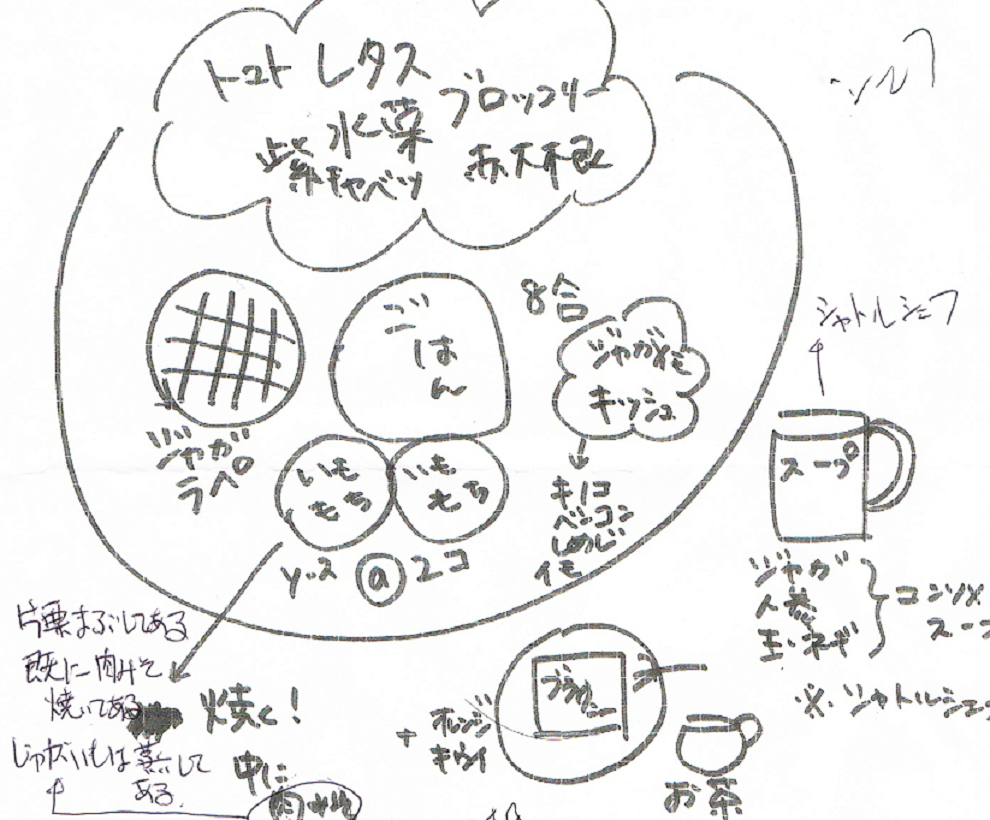 トマト レタス
ブロッコリー
水菜
紫キャベツ
赤大根
ごはん
8合
ジャガイモ
キッシュ
キノコ
ベーコン
しめじ
イモ
ジャガ
ラペ
いも
もち
いも
もち
ソース @ 2コ
シャトルシェフ
スープ
ジャガ
人参
玉ネギ
コンソメ
スープ
片栗まぶしてある
既に肉みそ
焼いてある
焼く!
じゃがいもは蒸して
ある
中に
肉みそ
+ オレンジ
キウイ
お茶